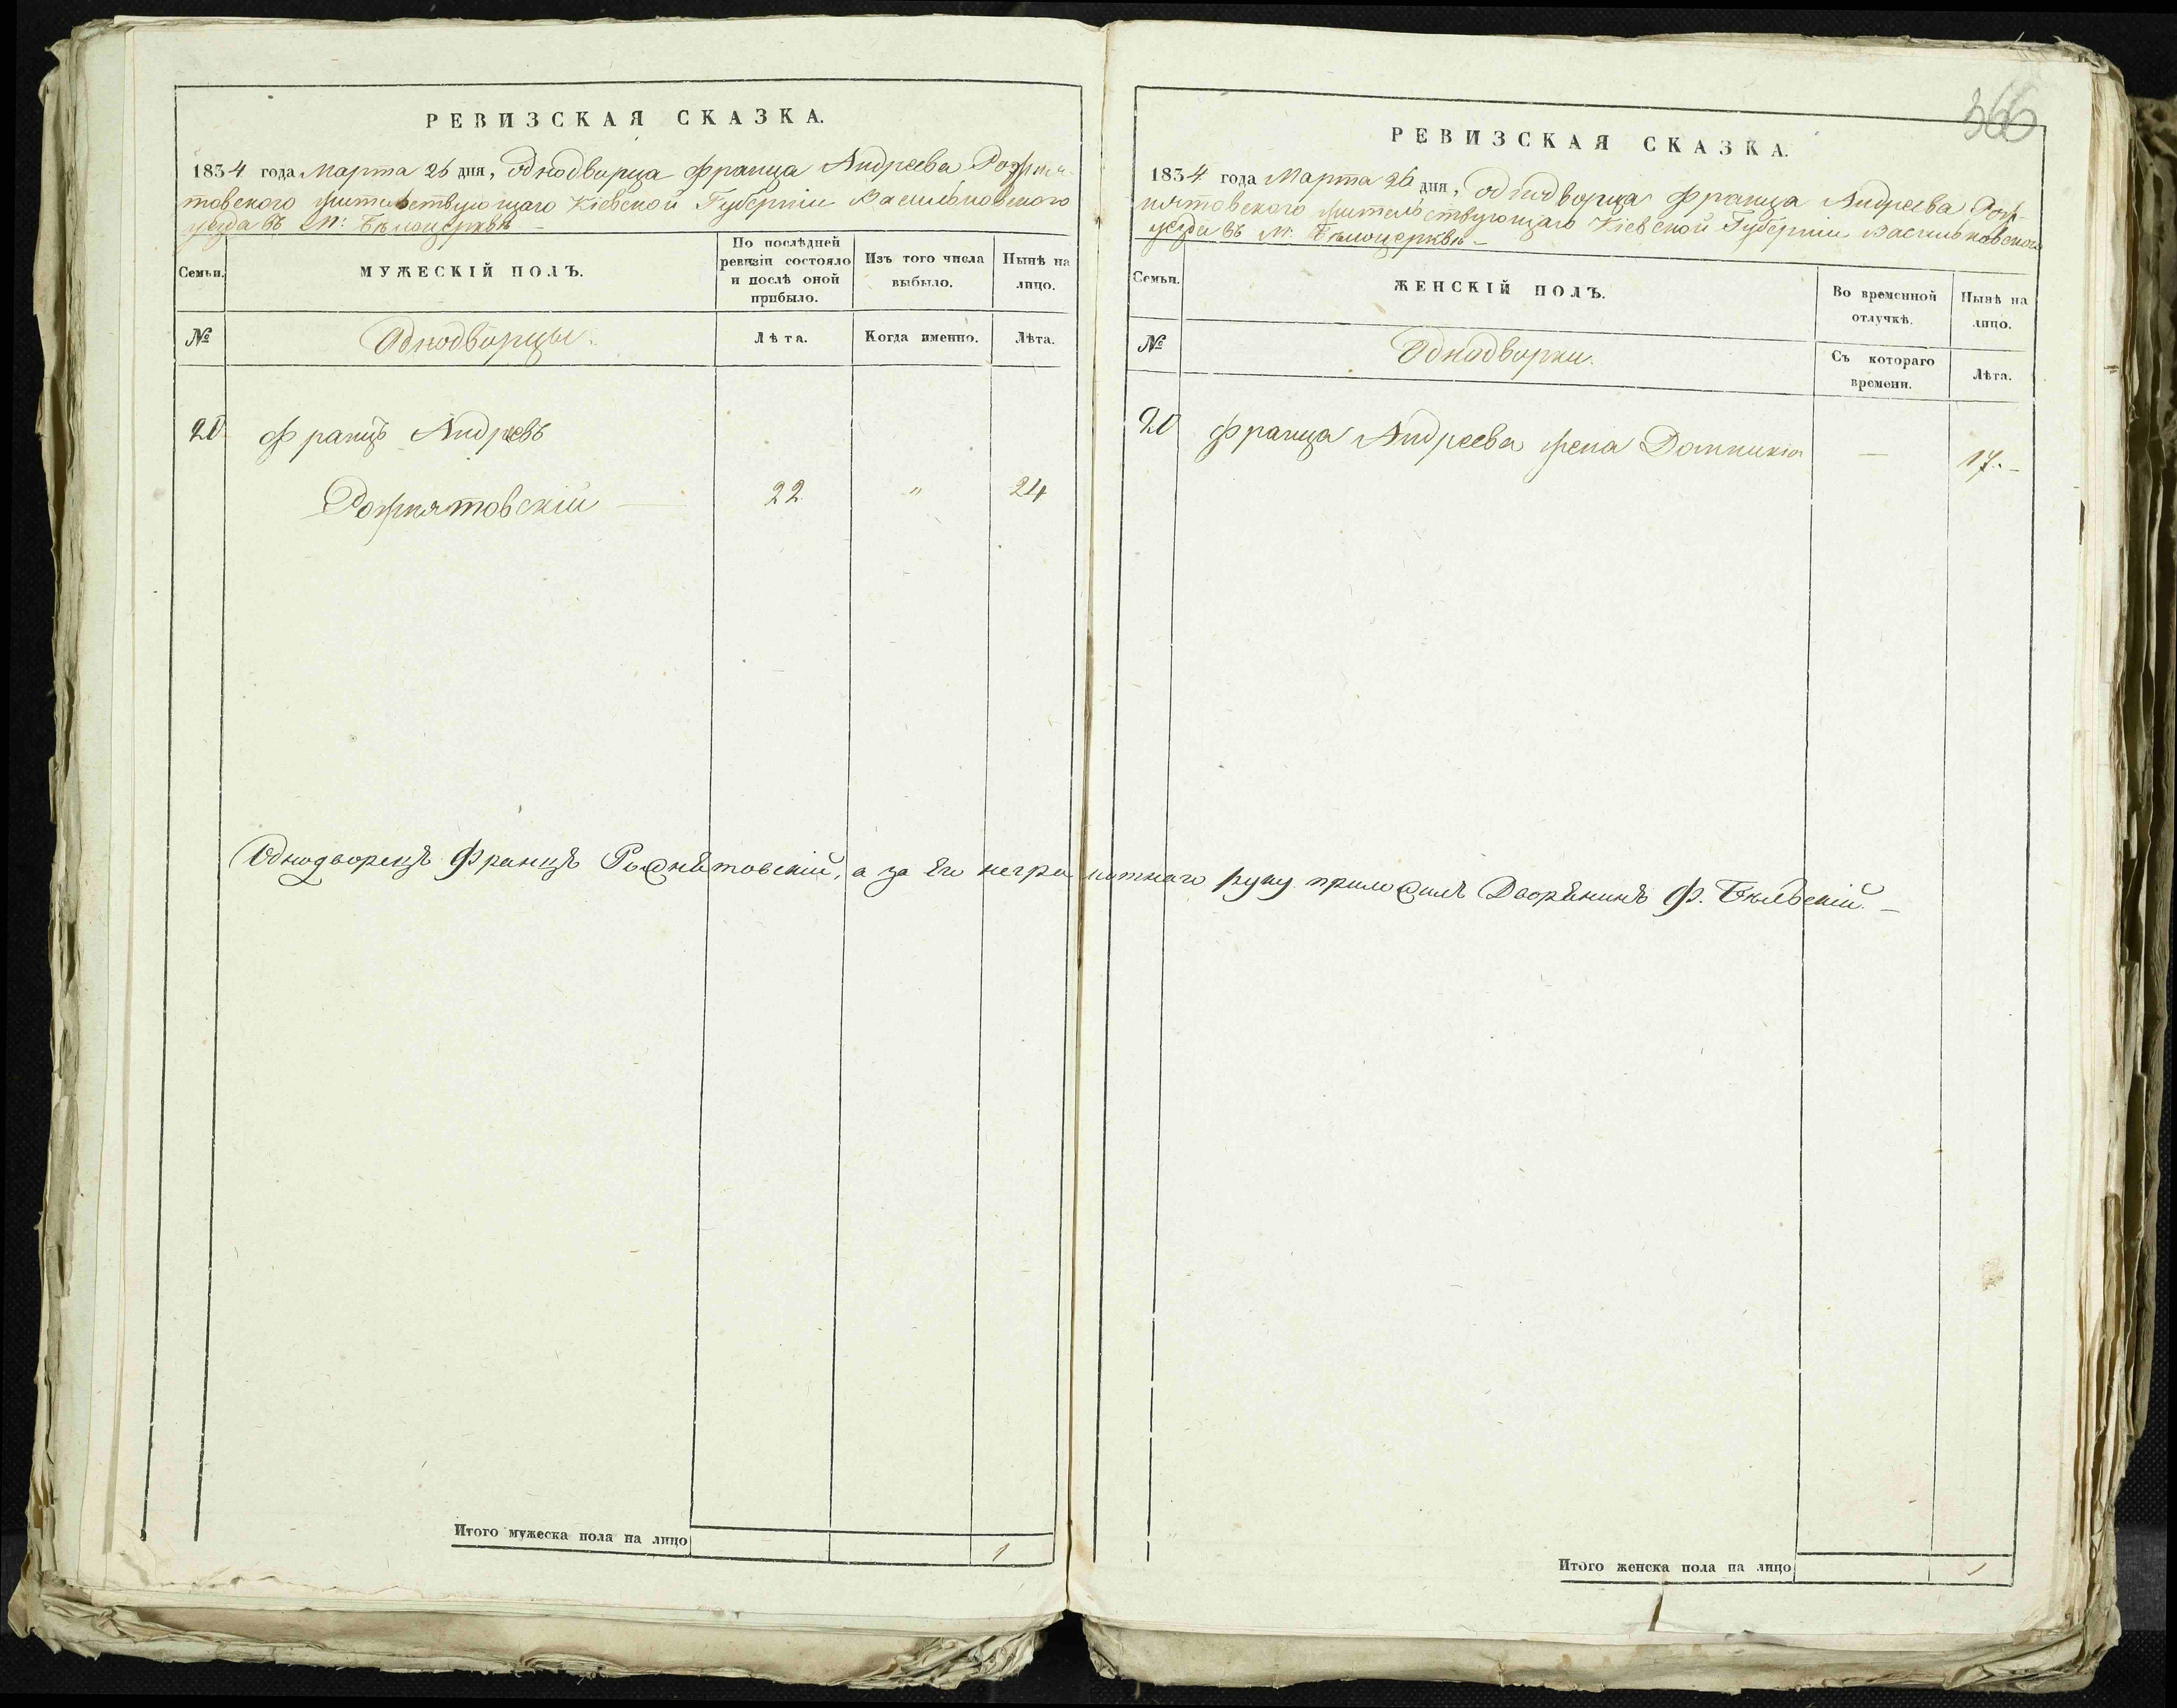 РЕВИЗСКАЯ СКАЗКА.
1834 года Марта 26 дня, однодворца Франца Андреева Рожня-
товского жительствующаго Кіевской Губерніи Васильковского
уезда въ М: Бѣлоцерквѣ -
Семьи.
МУЖЕСКІЙ ПОЛЪ.
По послѣдней
ревизіи состояло
и послѣ оной
прибыло.
Изъ того числа
выбыло.
Нынѣ на
лицо.
№
Однодворцы.
Лѣта.
Когда именно.
Лѣта.
20 Францъ Андреевъ
Рожнятовскій — 22 " 24
Однодворецъ Францъ Рожнятовскій, а за его неграмотнаго руку приложилъ Дворянинъ Ф. Бѣлвскій. —
Итого мужеска пола на лицо 1
366
РЕВИЗСКАЯ СКАЗКА.
1834 года Марта 26 дня, однодворца Франца Андреева Рож-
нятовского жительствующаго Кіевской Губерніи Васильковского
уезда въ М: Бѣлоцерквѣ -
Семьи.
ЖЕНСКІЙ ПОЛЪ.
Во временной
отлучкѣ.
Нынѣ на
лицо.
№
Однодворки.
Съ котораго
времени.
Лѣта.
20 Франца Андреева жена Домникія — 17. -
Итого женска пола на лицо 1